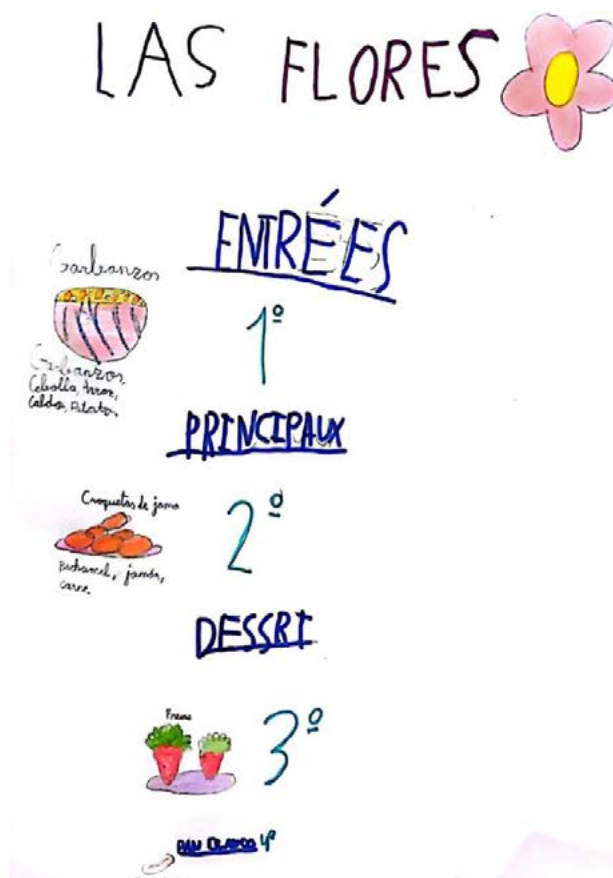 LAS FLORES
ENTRÉES
Garbanzos
1º
Garbanzos,
Cebolla, arroz,
Caldo, Patatas,
PRINCIPAUX
Croquetas de jamo
2º
Bechamel, jamón,
carne.
DESSRT
3º
PAN BLANCO 4º